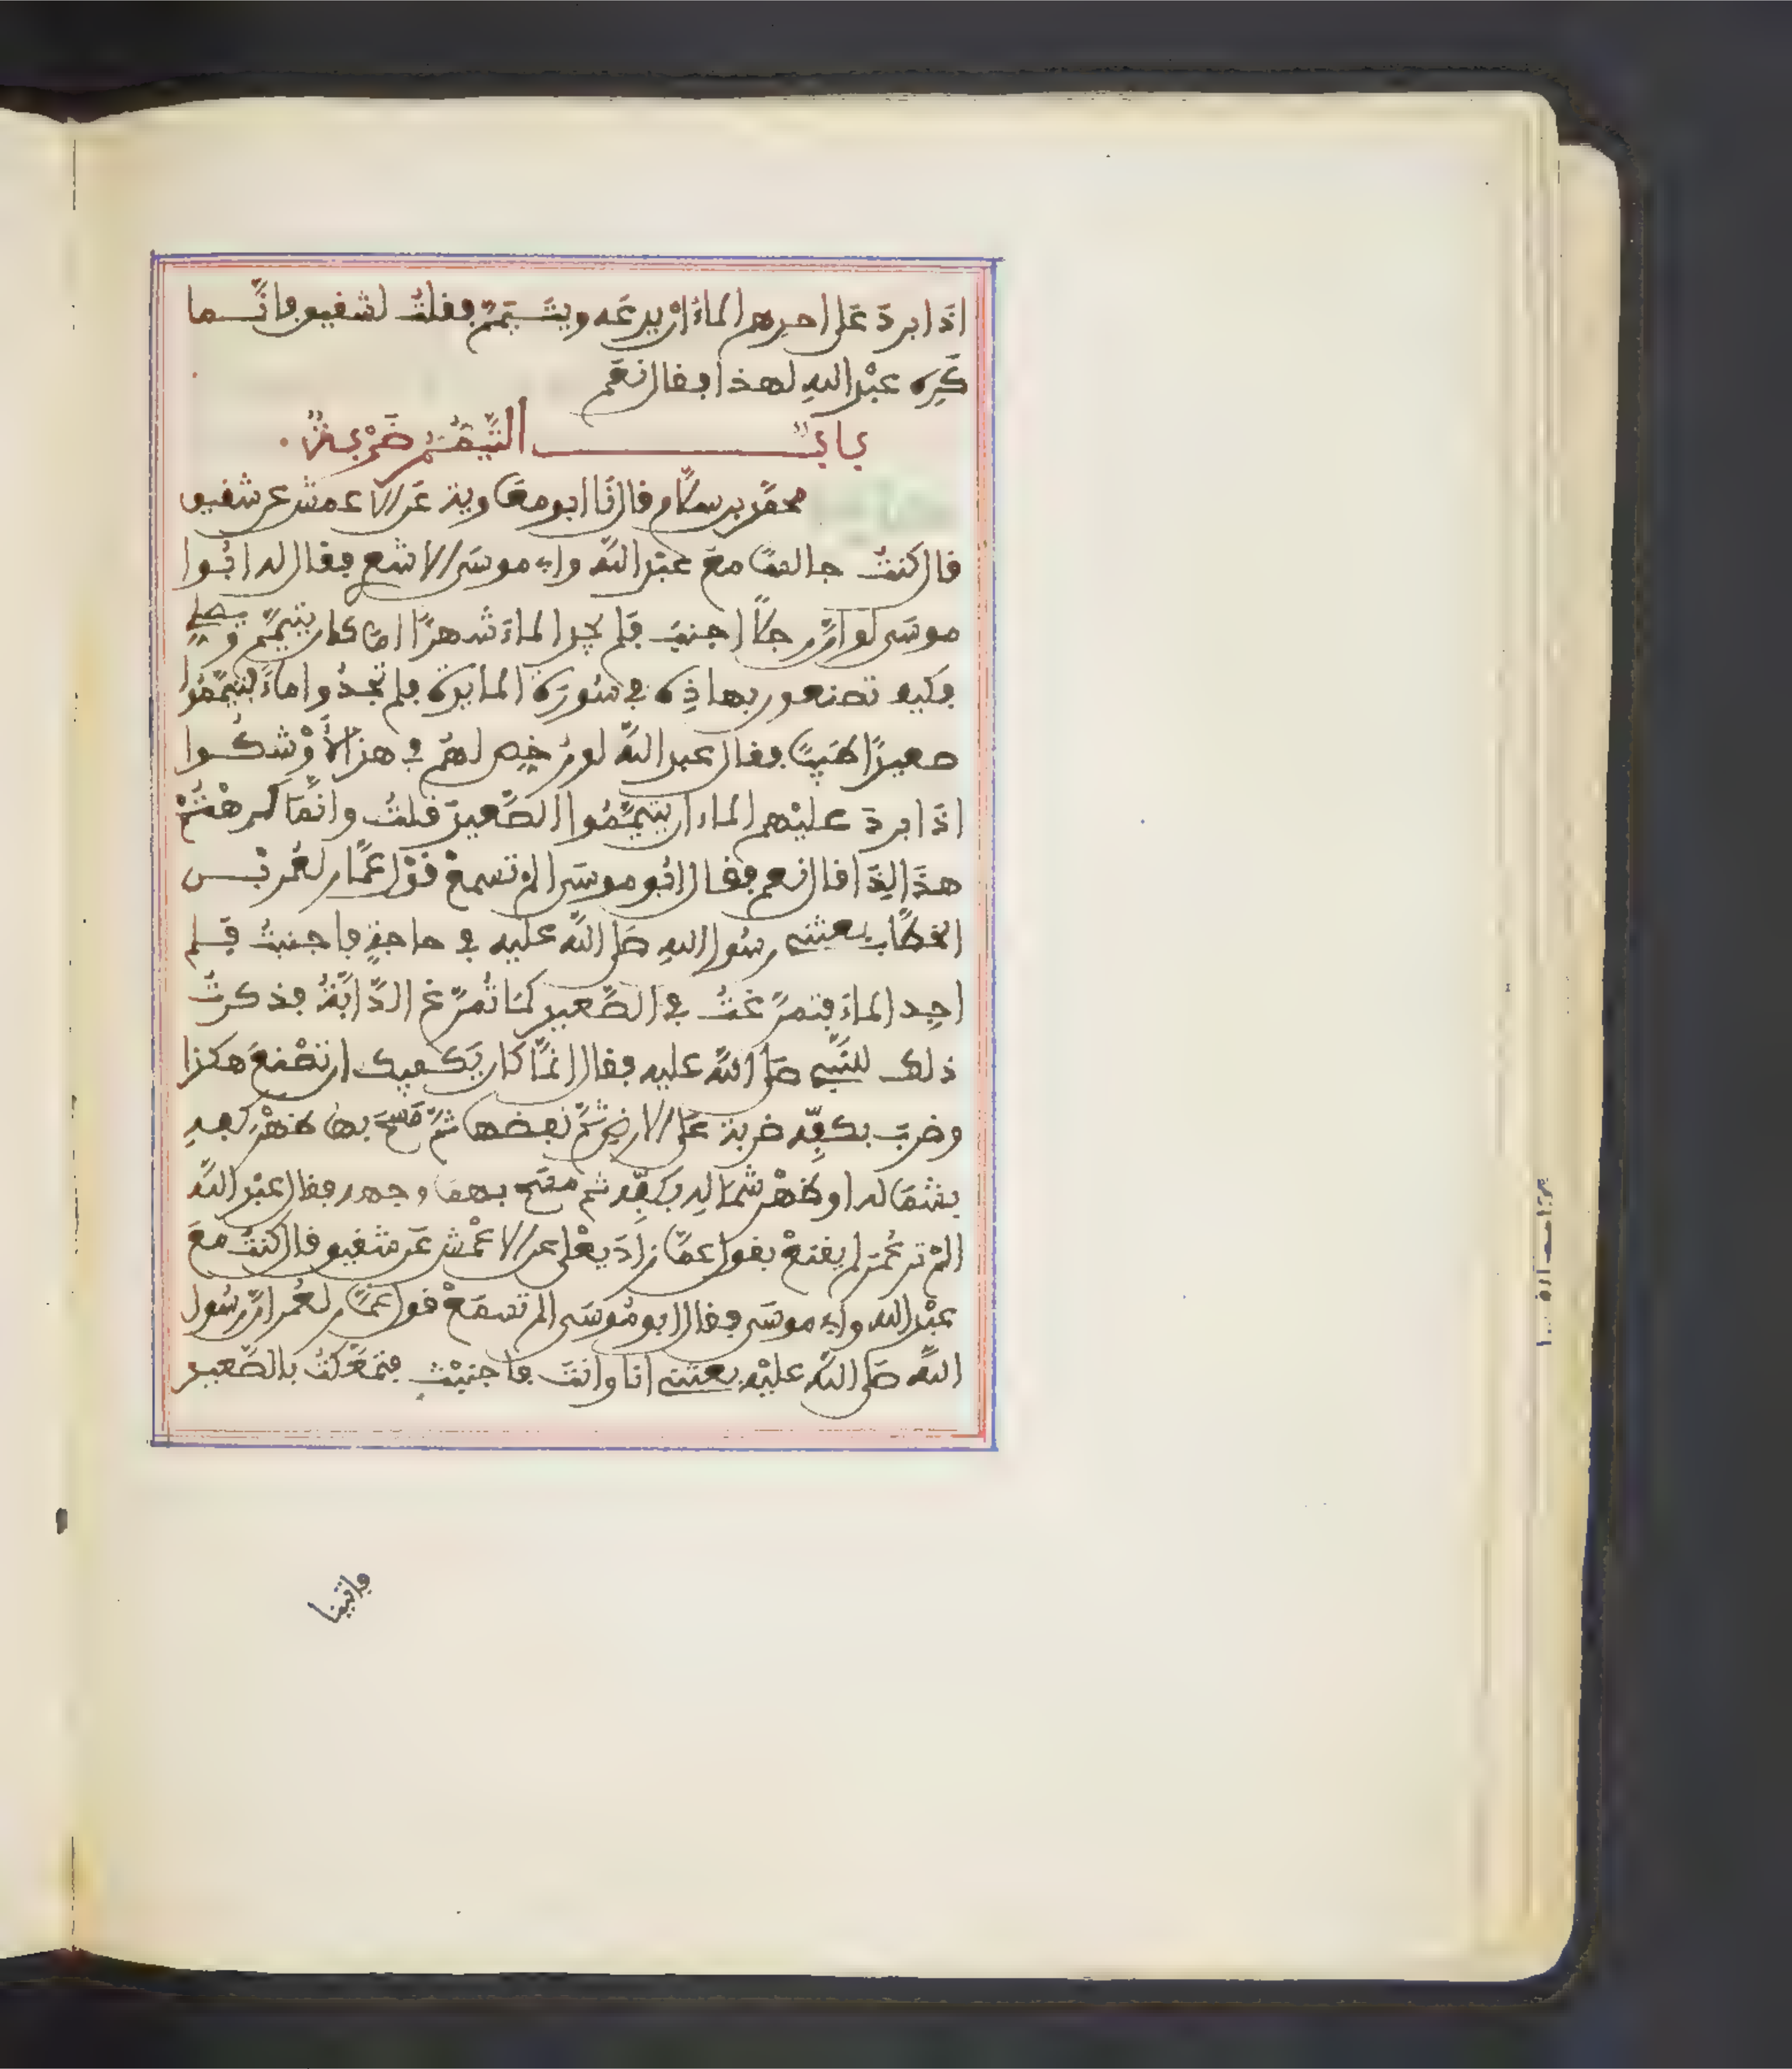 اذا برد على احدهم الماء ان يدعه ويتيمم فقلت لشقيق فانما
كره عبد الله لهذا فقال نعم
باب التيمم ضربة
محمد بن سلام قال نا ابو معاوية عن الاعمش عن شقيق
قال كنت جالسا مع عبد الله وابي موسى الاشع فقال له ابوا
موسى لو ان رجلا اجنب فلم يجد الماء شهرا اما كان يتيمم ويصلي
فكيف تصنعون بهاذه في سورة المايدة فلم تجدوا ماء فتيمموا
صعيدا طيبا فقال عبد الله لو رخص لهم في هذا لأوشكوا
اذا برد عليهم الماء ان يتيمموا الصعيد قلت وانما كرهتم
هذا لذا قال نعم فقال ابو موسى الم تسمع قول عمار لعمر بن
الخطاب بعثني رسول الله صلى الله عليه في حاجة فاجنبت فلم
اجد الماء فتمرغت في الصعيد كما تمرغ الدابة فذكرت
ذلك للنبي صلى الله عليه فقال انما كان يكفيك ان تصنع هكذا
وضرب بكفه ضربة على الارض ثم نفضها ثم مسح بها ظهر كفه
بشماله او ظهر شماله بكفه ثم مسح بهما وجهه فقال عبد الله
الم تر عمر لم يقنع بقول عمار زاد يعلى عن الاعمش عن شقيق قال كنت مع
عبد الله وابي موسى فقال ابو موسى الم تسمع قول عمار لعمر ان رسول
الله صلى الله عليه بعثني انا وانت فاجنبت فتمعكت بالصعيد
فاتينا